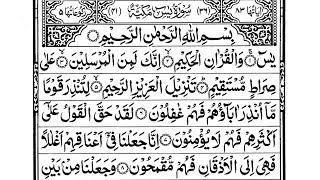 آياتها ٨٣ (٣٦) سُوْرَةُ يٰسٓ مَكِّيَّةٌ (٤١) رُكُوْعَاتُهَا ٥
بِسْمِ اللّٰهِ الرَّحْمٰنِ الرَّحِيْمِ
يٰسٓ ۝١ وَالْقُرْاٰنِ الْحَكِيْمِ ۝٢ اِنَّكَ لَمِنَ الْمُرْسَلِيْنَ ۝٣ عَلٰى
صِرَاطٍ مُّسْتَقِيْمٍ ۝٤ تَنْزِيْلَ الْعَزِيْزِ الرَّحِيْمِ ۝٥ لِتُنْذِرَ قَوْمًا
مَّاۤ اُنْذِرَ اٰبَآؤُهُمْ فَهُمْ غٰفِلُوْنَ ۝٦ لَقَدْ حَقَّ الْقَوْلُ عَلٰۤى
اَكْثَرِهِمْ فَهُمْ لَا يُؤْمِنُوْنَ ۝٧ اِنَّا جَعَلْنَا فِيْۤ اَعْنَاقِهِمْ اَغْلٰلًا
فَهِيَ اِلَى الْاَذْقَانِ فَهُمْ مُّقْمَحُوْنَ ۝٨ وَجَعَلْنَا مِنْۢ بَيْنِ